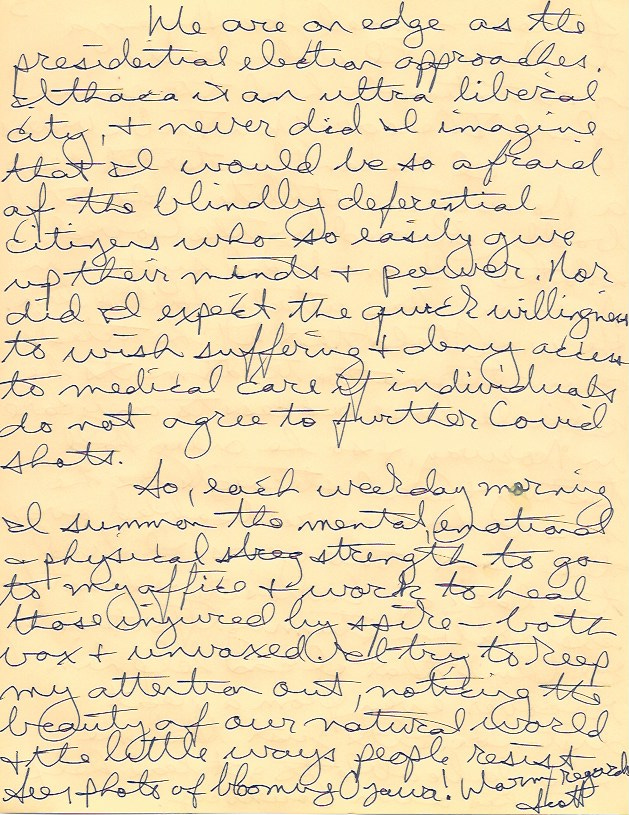 We are on edge as the
presidential election approaches.
Ithaca is an ultra liberal
city, + never did I imagine
that I would be so afraid
of the blindly deferential
citizens who so easily give
up their minds + power. Nor
did I expect the quick willingness
to wish suffering + deny access
to medical care if individuals
do not agree to further Covid
shots.
So, each weekday morning
I summon the mental, emotional
+ physical strength to go
to my office + work to heal
those injured by spike – both
vax + unvaxed. I try to keep
my attention out, noticing the
beauty of our natural world
+ the little ways people resist
See photos of blooming Ojawa! Warm regards
Scott